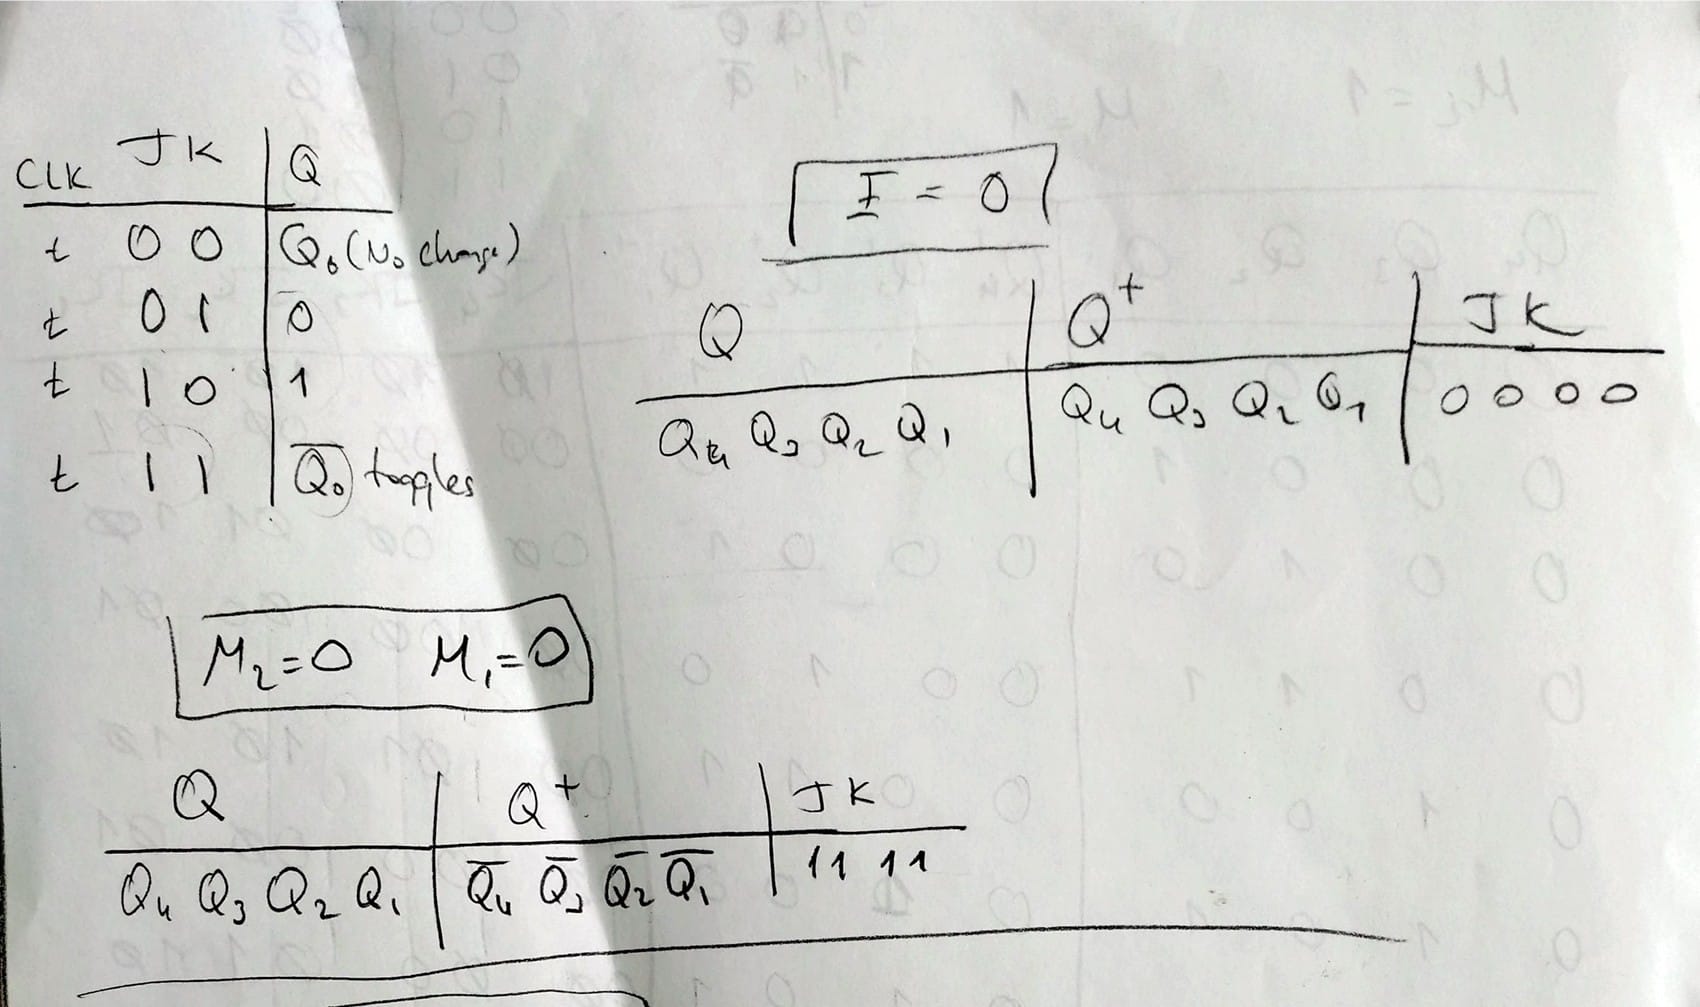 CLK J K Q
t 0 0 Q₀ (No change)
t 0 1 0
t 1 0 1
t 1 1 Q̅₀ toggles
I = 0
Q Q⁺ J K
Q₄ Q₃ Q₂ Q₁ Q₄ Q₃ Q₂ Q₁ 0 0 0 0
M₂=0 M₁=0
Q Q⁺ J K
Q₄ Q₃ Q₂ Q₁ Q̅₄ Q̅₃ Q̅₂ Q̅₁ 11 11